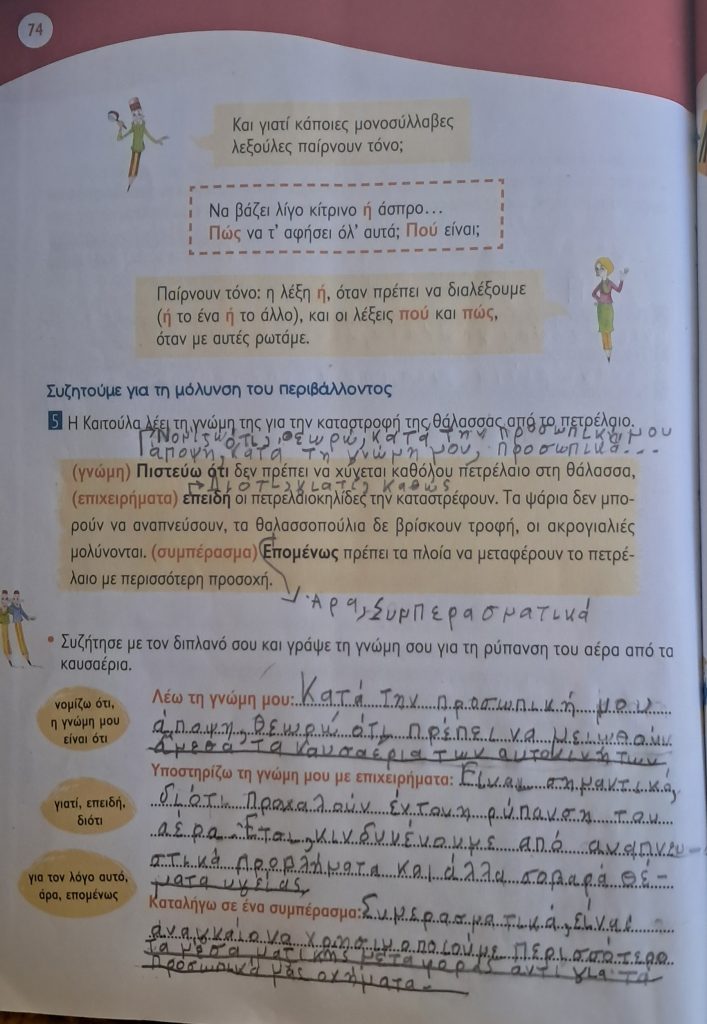 74
Και γιατί κάποιες μονοσύλλαβες
λεξούλες παίρνουν τόνο;
Να βάζει λίγο κίτρινο ή άσπρο...
Πώς να τ' αφήσει όλ' αυτά; Πού είναι;
Παίρνουν τόνο: η λέξη ή, όταν πρέπει να διαλέξουμε
(ή το ένα ή το άλλο), και οι λέξεις πού και πώς,
όταν με αυτές ρωτάμε.
Συζητούμε για τη μόλυνση του περιβάλλοντος
5 Η Καιτούλα λέει τη γνώμη της για την καταστροφή της θάλασσας από το πετρέλαιο.
Νομίζω ότι, θεωρώ, κατά την προσωπική μου
άποψη, κατά τη γνώμη μου, προσωπικά...
(γνώμη) Πιστεύω ότι δεν πρέπει να χύγεται καθόλου πετρέλαιο στη θάλασσα,
Διότι, γιατί, καθώς
(επιχειρήματα) επειδή οι πετρελαιοκηλίδες την καταστρέφουν. Τα ψάρια δεν μπο-
ρούν να αναπνεύσουν, τα θαλασσοπούλια δε βρίσκουν τροφή, οι ακρογιαλιές
μολύνονται. (συμπέρασμα) Επομένως πρέπει τα πλοία να μεταφέρουν το πετρέ-
λαιο με περισσότερη προσοχή.
Άρα, Συμπερασματικά
• Συζήτησε με τον διπλανό σου και γράψε τη γνώμη σου για τη ρύπανση του αέρα από τα
καυσαέρια.
νομίζω ότι,
η γνώμη μου
είναι ότι
Λέω τη γνώμη μου: Κατά την προσωπική μου
άποψη, θεωρώ ότι πρέπει να μειωθούν
άμεσα τα καυσαέρια των αυτοκινήτων
Υποστηρίζω τη γνώμη μου με επιχειρήματα: Είναι σημαντικό,
γιατί, επειδή,
διότι
διότι προκαλούν έντονη ρύπανση του
αέρα. Έτσι, κινδυνένουμε από αναπνευ-
στικά προβλήματα και άλλα σοβαρά θέ-
ματα υγείας.
για τον λόγο αυτό,
άρα, επομένως
Καταλήγω σε ένα συμπέρασμα: Συμερασματικά, είναι
άναγκαιο να χρησιμοποιούμε περισσότερο
τα μέσα ματικής μεταφοράς αντί για τα
προσωπικά μας οχήματα.